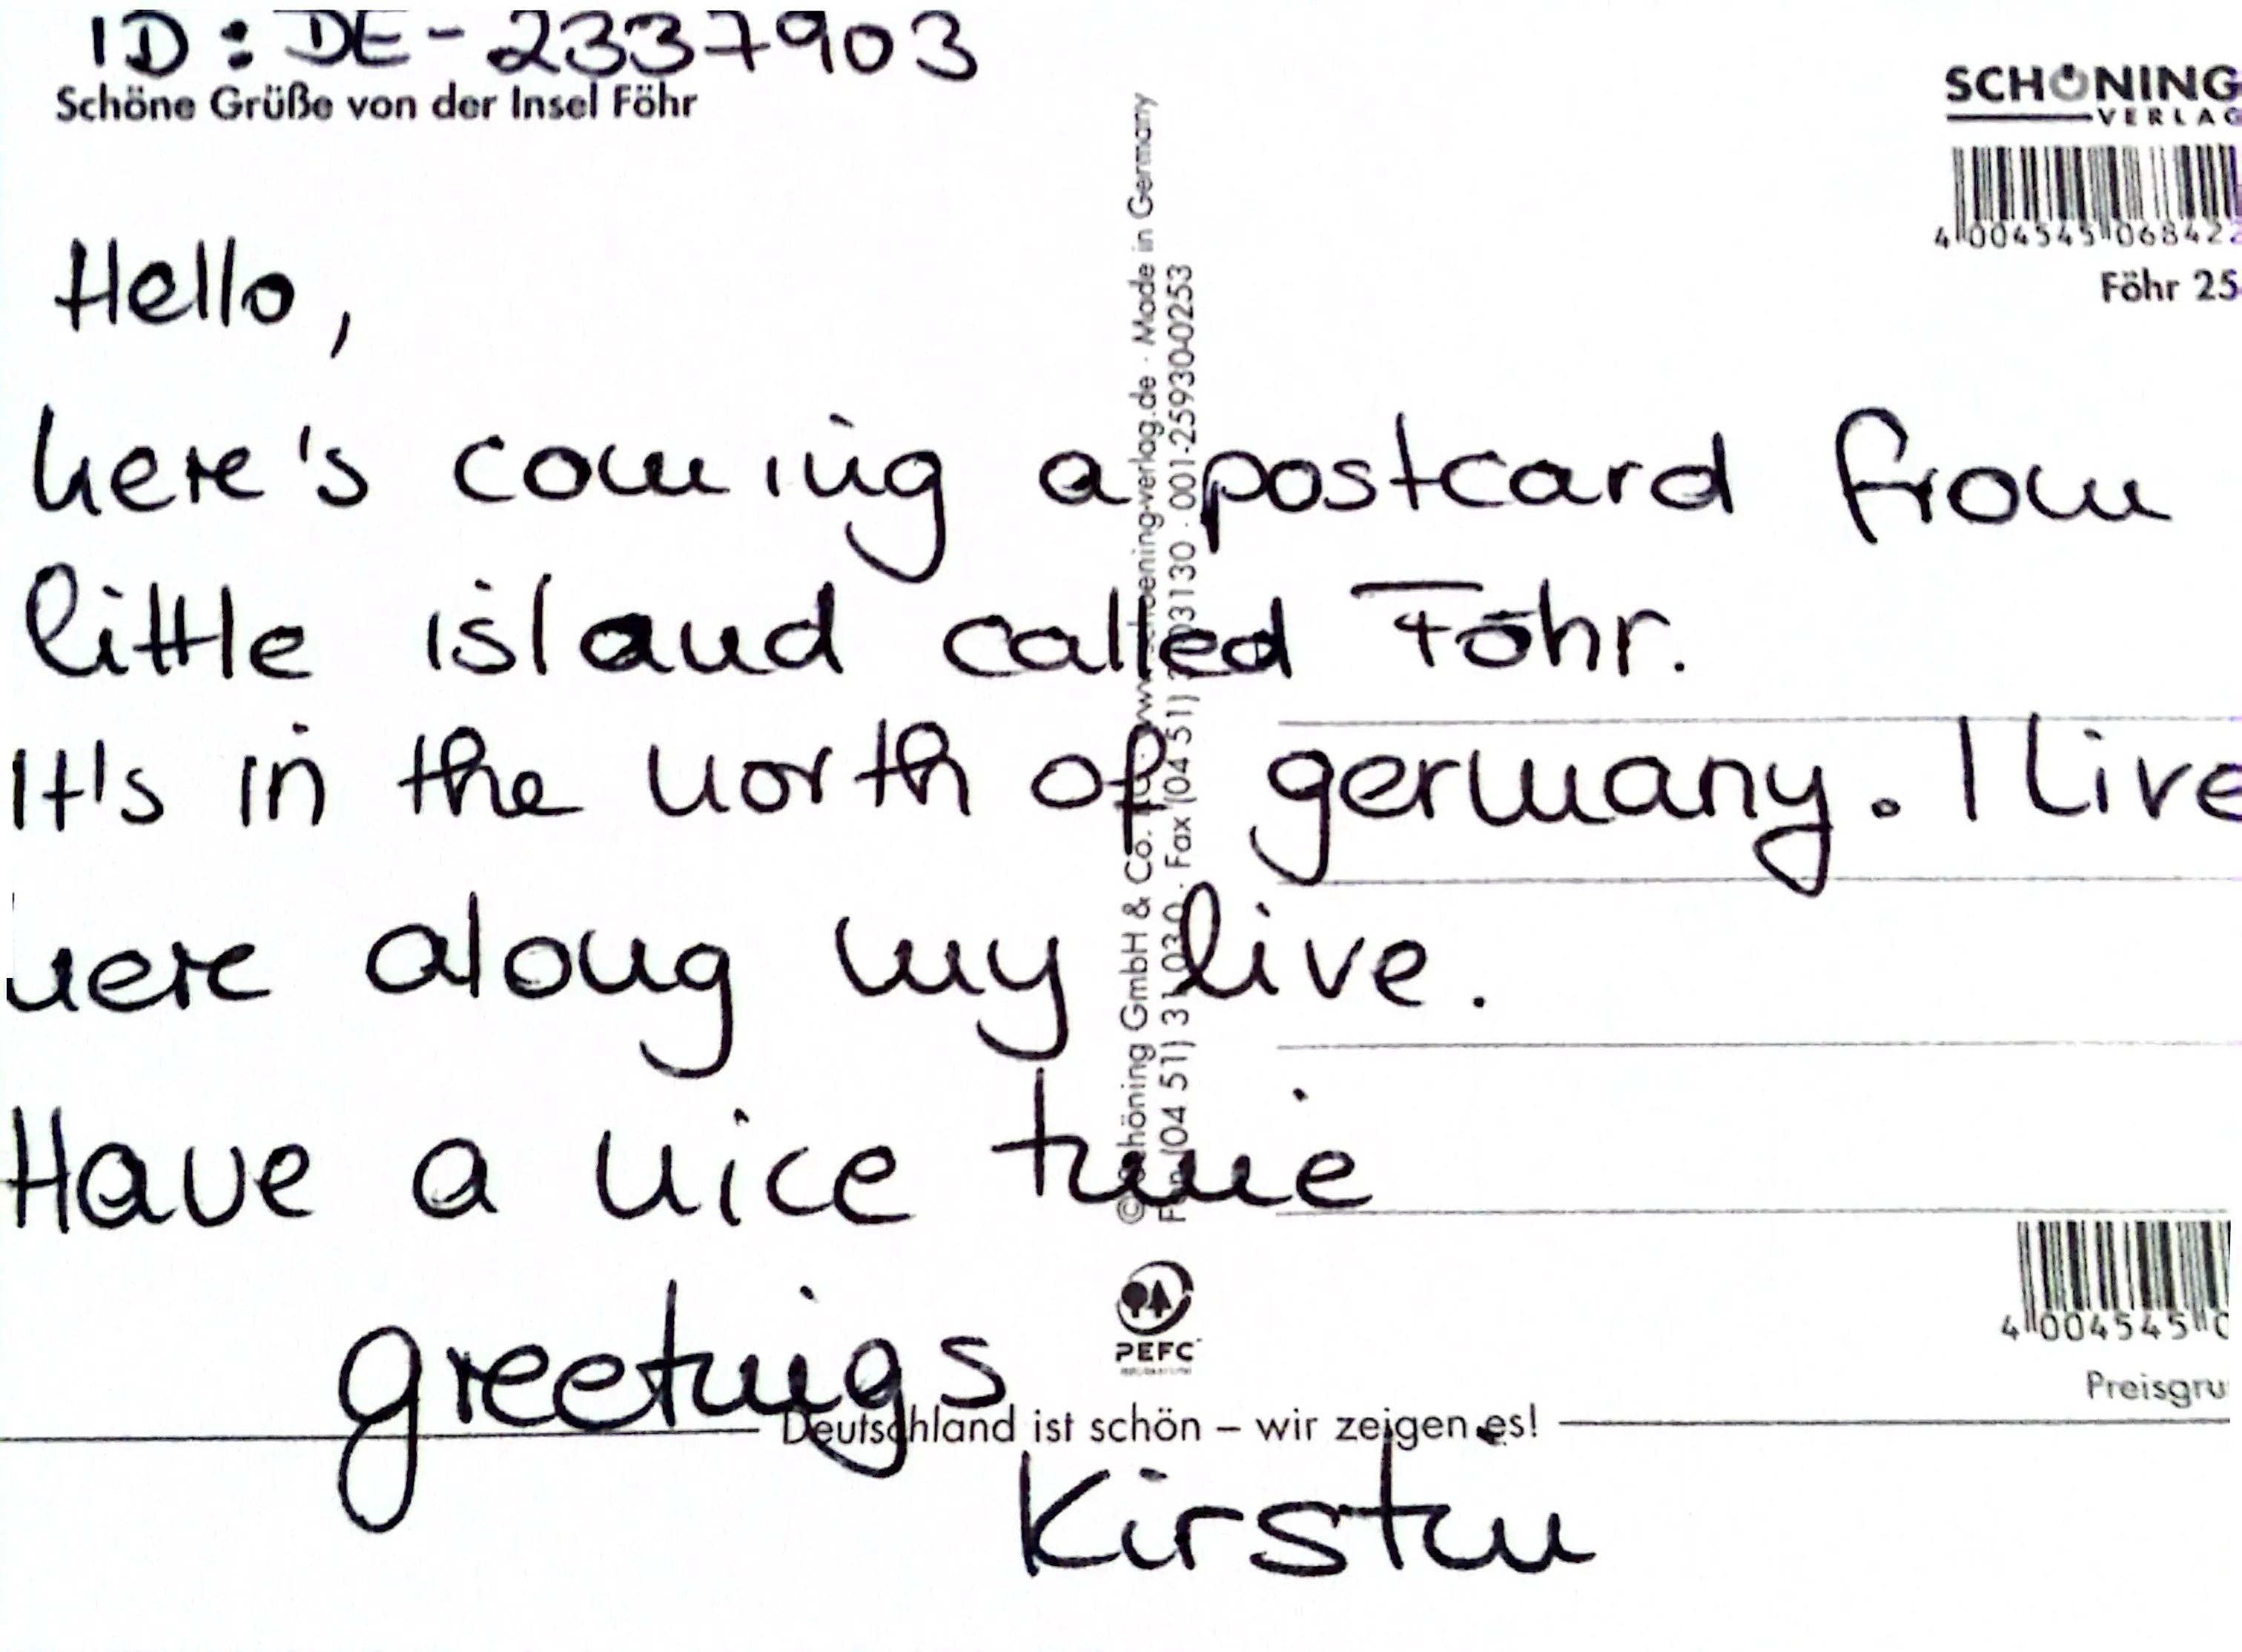 ID: DE-2337903
Schöne Grüße von der Insel Föhr
SCHÖNING
VERLAG
4 004545 068422
Föhr 25
Hello,
here's coming a postcard from
little island called Föhr.
It's in the north of germany. I live
here along my live.
Have a nice time
greetings
Kirstin
© Schöning GmbH & Co. · www.schoening-verlag.de · Made in Germany
(04 51) 3 10 30 · Fax (04 51) 3 03130 · 001-25930-0253
PEFC
4 004545 0
Preisgru
Deutschland ist schön – wir zeigen es!